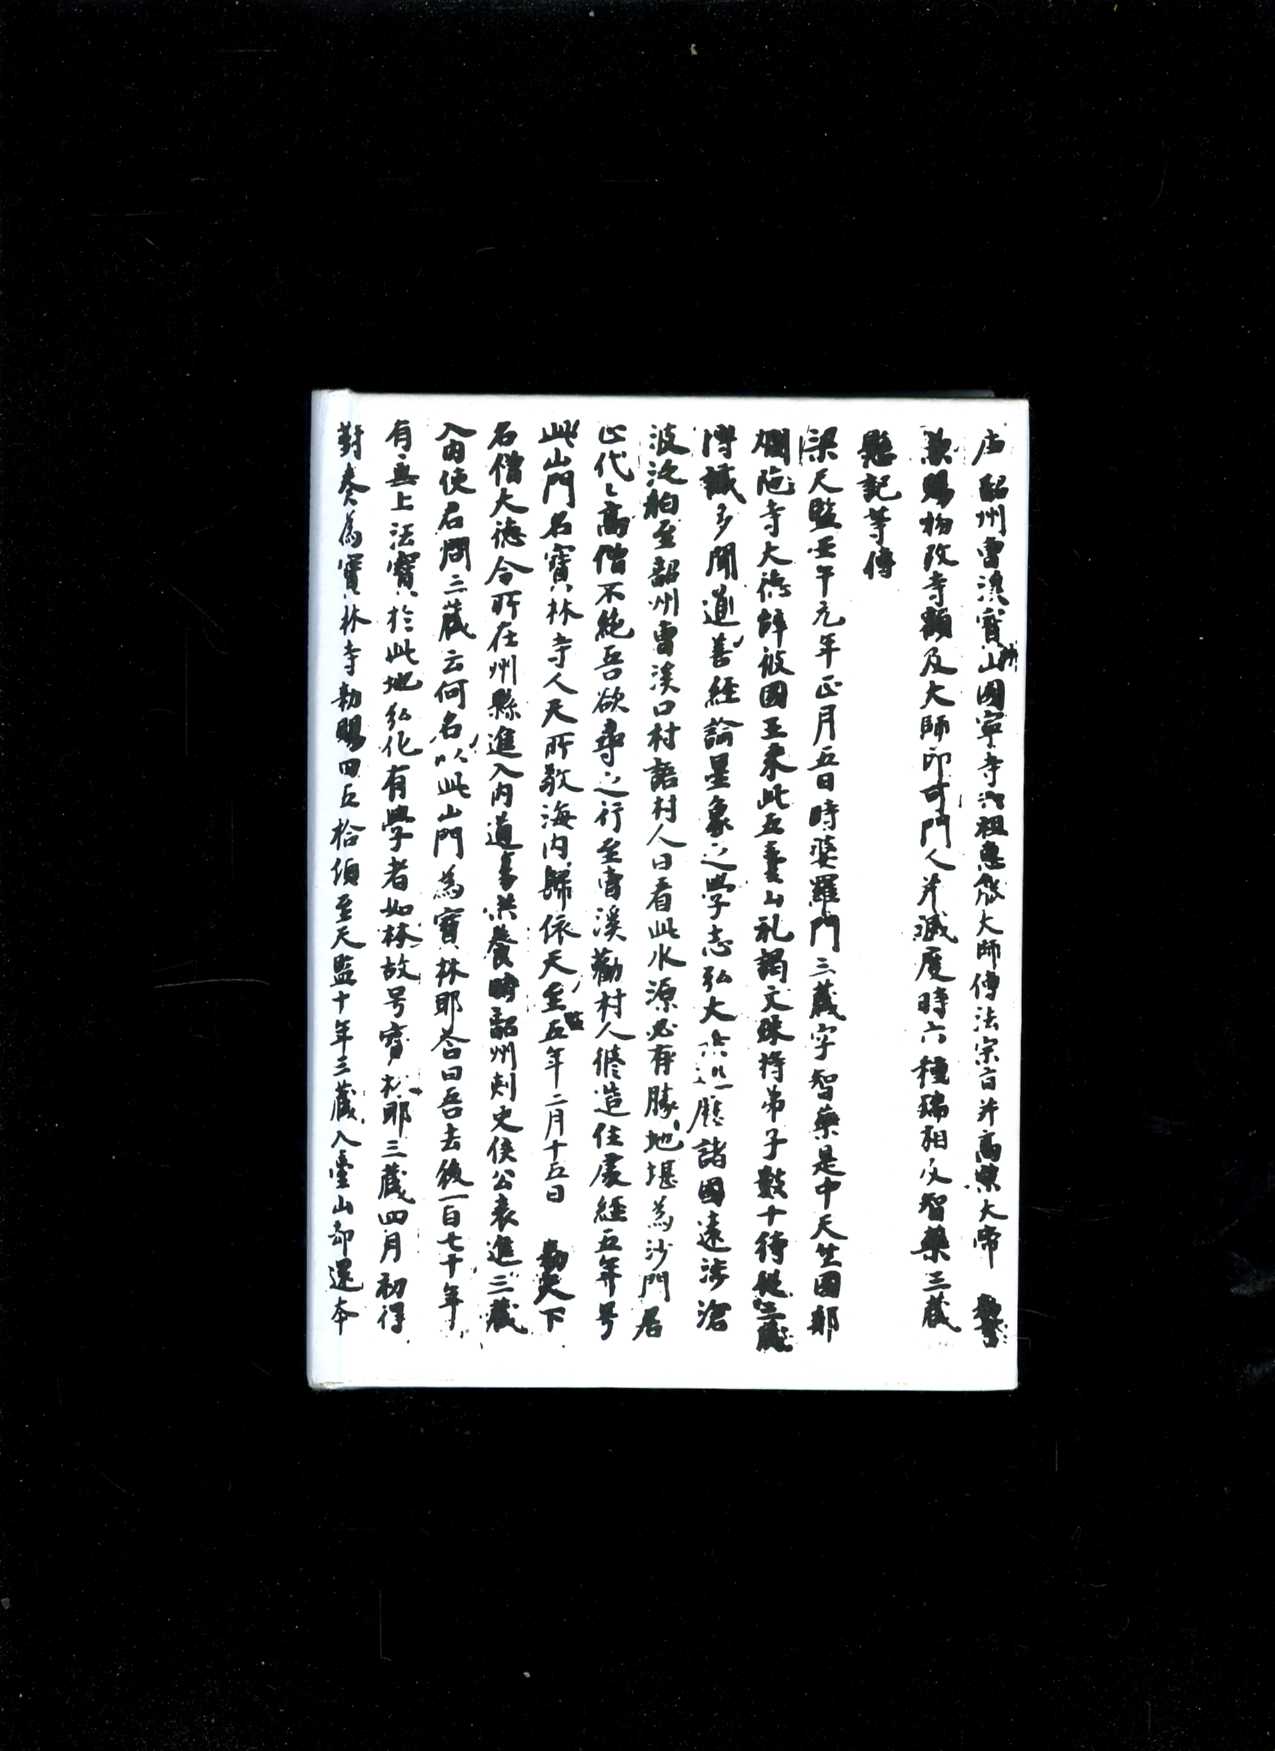 唐韶州曹溪寶林山國寧寺六祖惠能大師傳法宗旨并高宗大帝 勅書
兼賜物改寺額及大師印可門人并滅度時六種瑞相及智藥三藏
懸記等傳
梁天監壬午元年正月五日時婆羅門三藏字智藥是中天竺國那
爛陀寺大德辞彼國王来此五臺山礼謁文殊将弟子數十侍從三藏
博識多聞道善經論星象之學志弘大 歷諸國遠涉滄
波泛舶至韶州曹溪口村語村人曰看此水源必有勝地堪為沙門居
止代〻高僧不絶吾欲尋之行至曹溪勸村人修造住處經五年号
此山門名寶林寺人天所敬海内歸依天監五年二月十五日 勅天下
名僧大德令所在州縣進入内道場供養時韶州刺史侯公表進三藏
入内使君問三藏云何名以此山門為寶林耶答曰吾去後一百七十年
有無上法寶於此地弘化有學者如林故号寶林耶三藏四月初得
對奏為寶林寺勅賜田五拾傾至天監十年三藏入臺山却還本